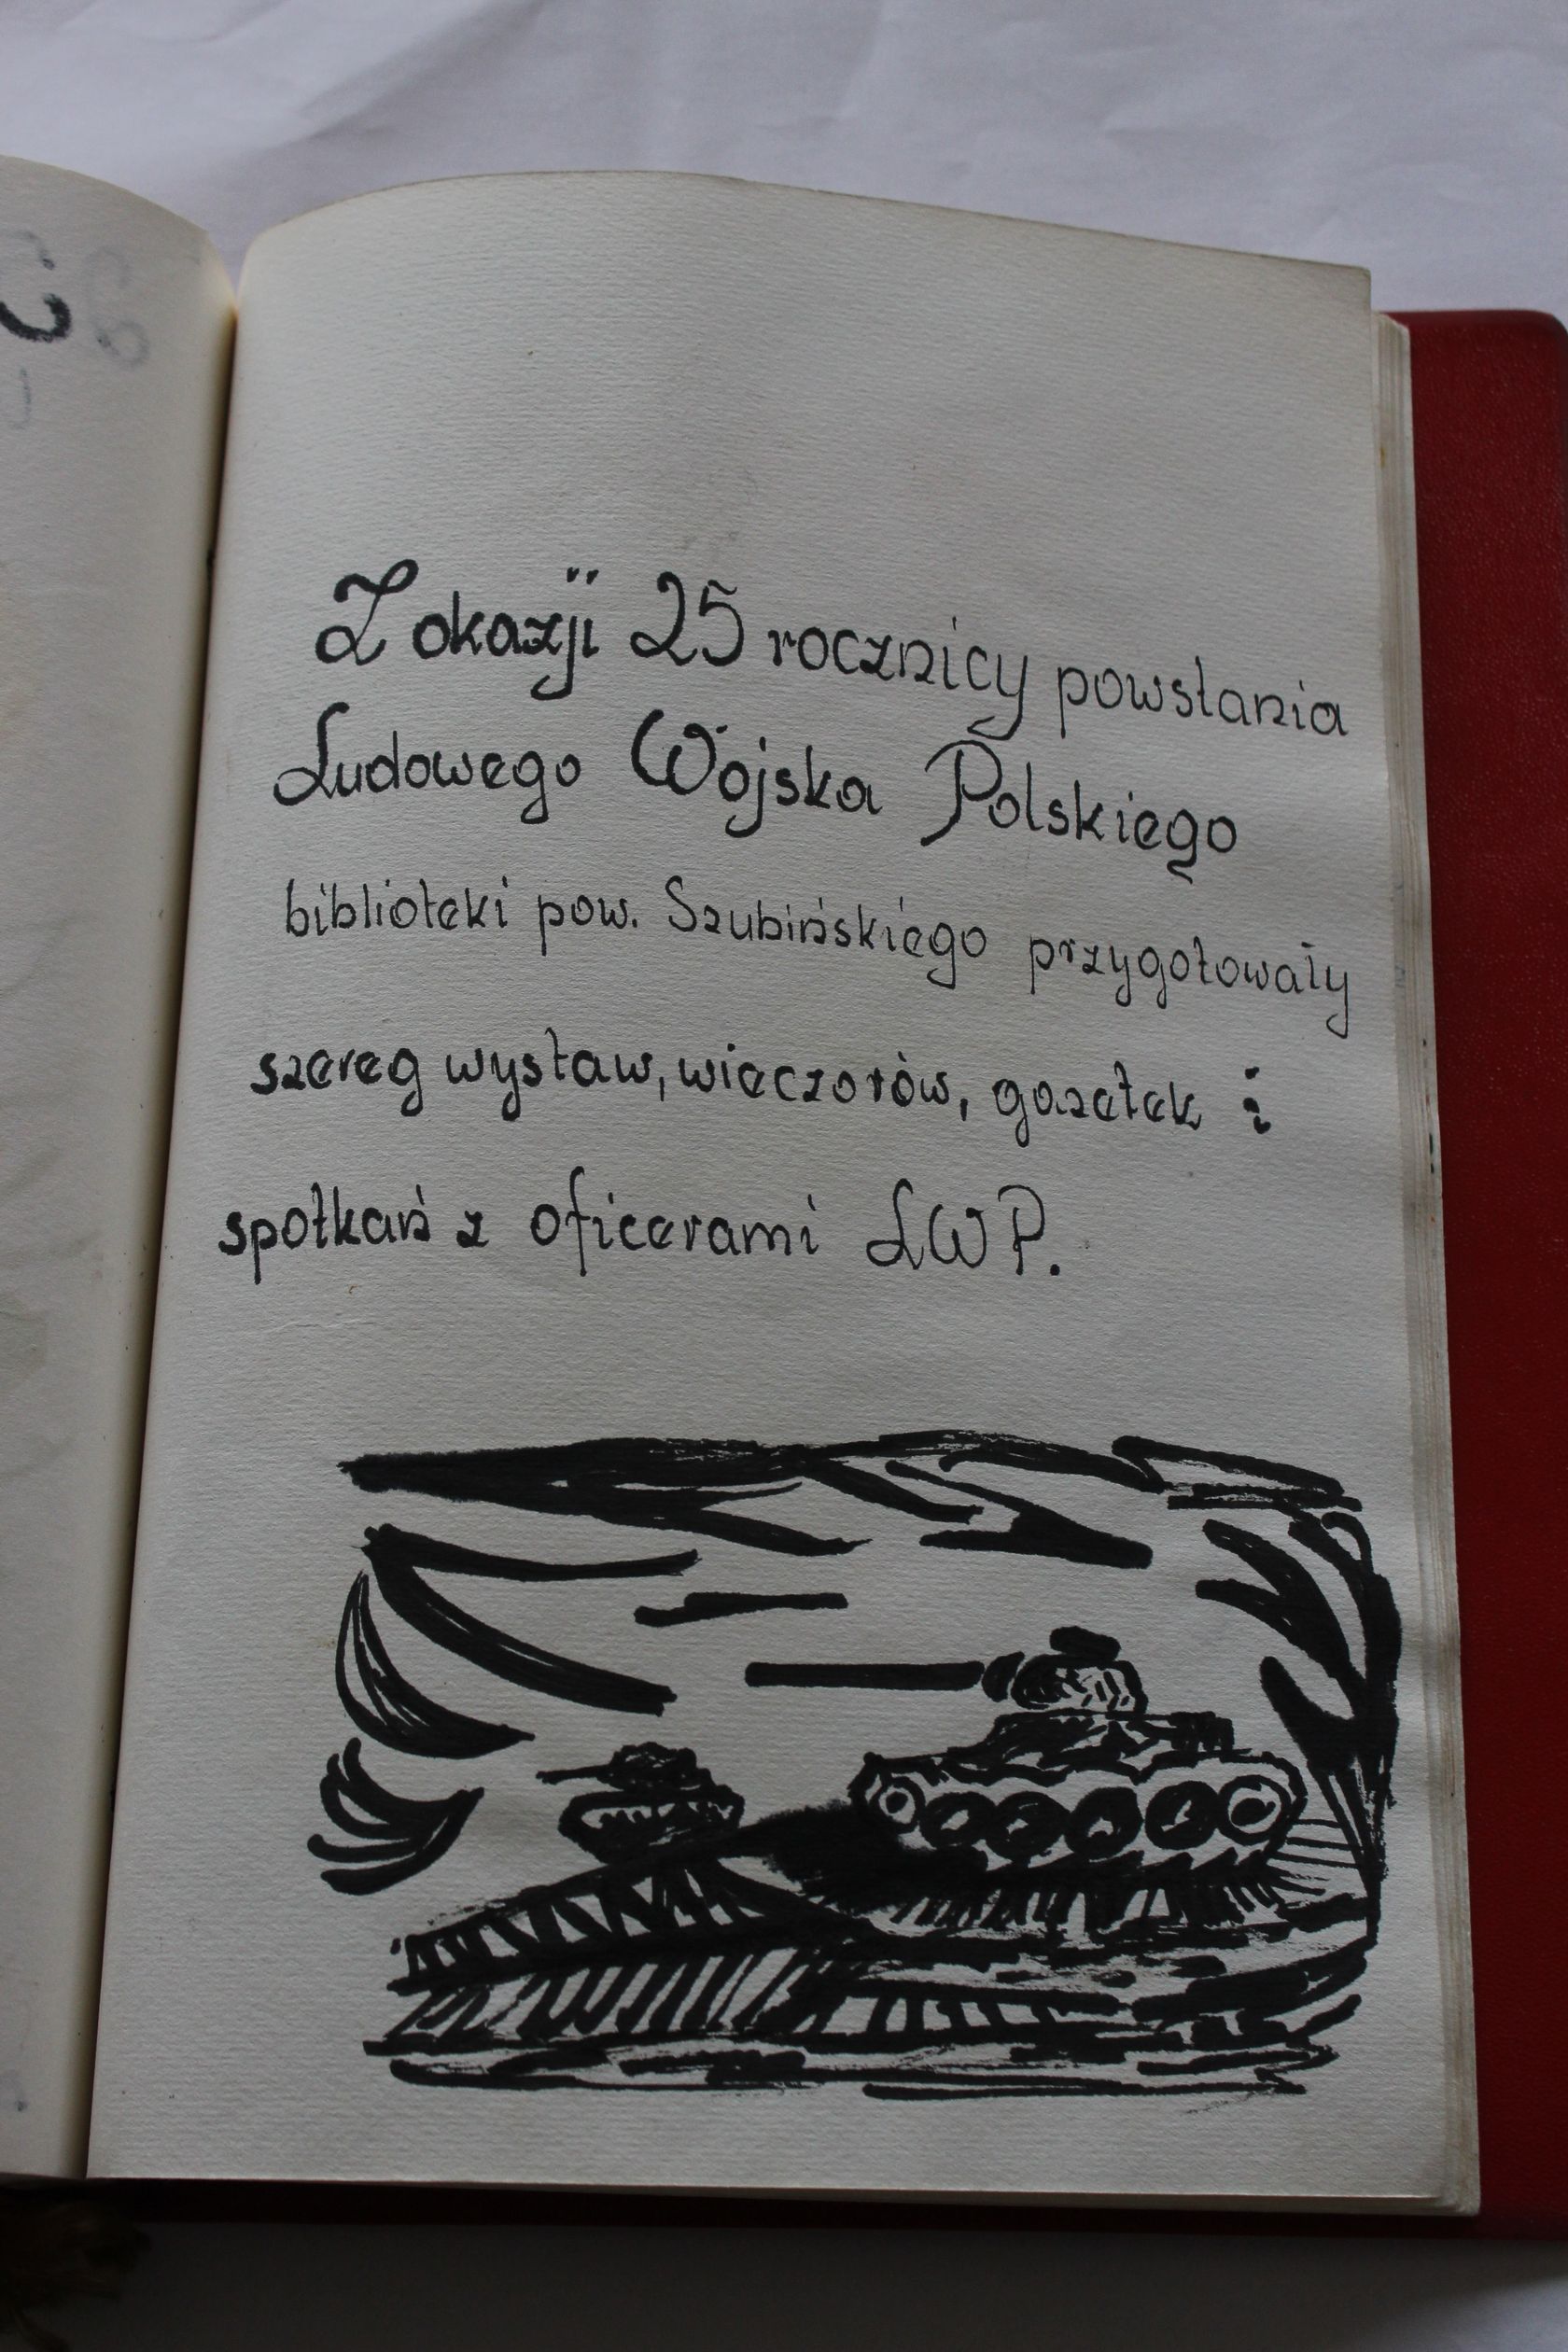 Z okazji 25 rocznicy powstania
Ludowego Wojska Polskiego
biblioteki pow. Szubińskiego przygotowały
szereg wystaw, wieczorów, gazetek i
spotkań z oficerami LWP.